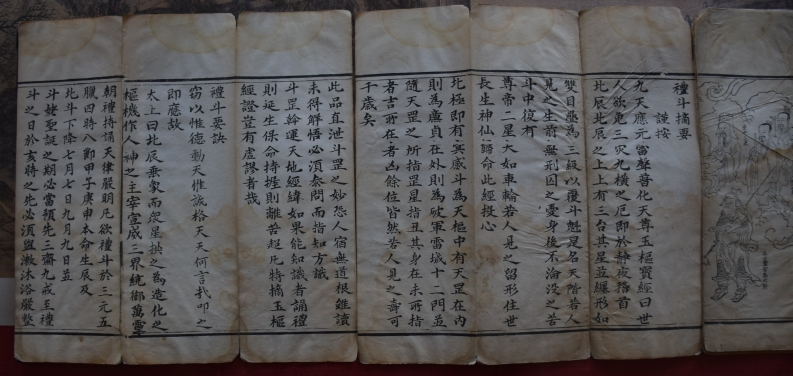 禮斗摘要
謹按
九天應元雷聲普化天尊玉樞寶經曰世
人欲免三災九橫之厄即於靜夜稽首
北辰北辰之上上有三台其星並躔形如
雙目疊為三級以覆斗魁是名天階若人
見之生前無刑囚之憂身後不淪沒之苦
斗中復有
尊帝二星大如車輪若人見之留形住世
長生神仙歸命此經投心
北極即有冥感斗為天樞中有天罡在內
則為廉貞在外則為破軍雷城十二門並
隨天罡之所指罡星指丑其身在未所指
者吉所在者凶餘位皆然若人見之壽可
千歲矣
此品直泄斗罡之妙恐人宿無道根雖讀
未得解悟必須參問而指知方識
斗罡斡運天地經緯如果能知識者誦禮
則延生保命持握則離苦超凡特摘玉樞
經證豈有虛謬者哉
禮斗要訣
窃以惟德動天惟誠格天天何言哉叩之
即應故
太上曰北辰垂象而衆星拱之為造化之
樞機作人神之主宰宣威三界統御萬靈
朝禮持誦天律嚴明凡欲禮斗於三元五
臘四時八節甲子庚申本命生辰及
北斗下降七月七日九月九日並
斗姥聖誕之期必當預先三齋九戒至禮
斗之日於亥時之先必須盥漱沐浴嚴整